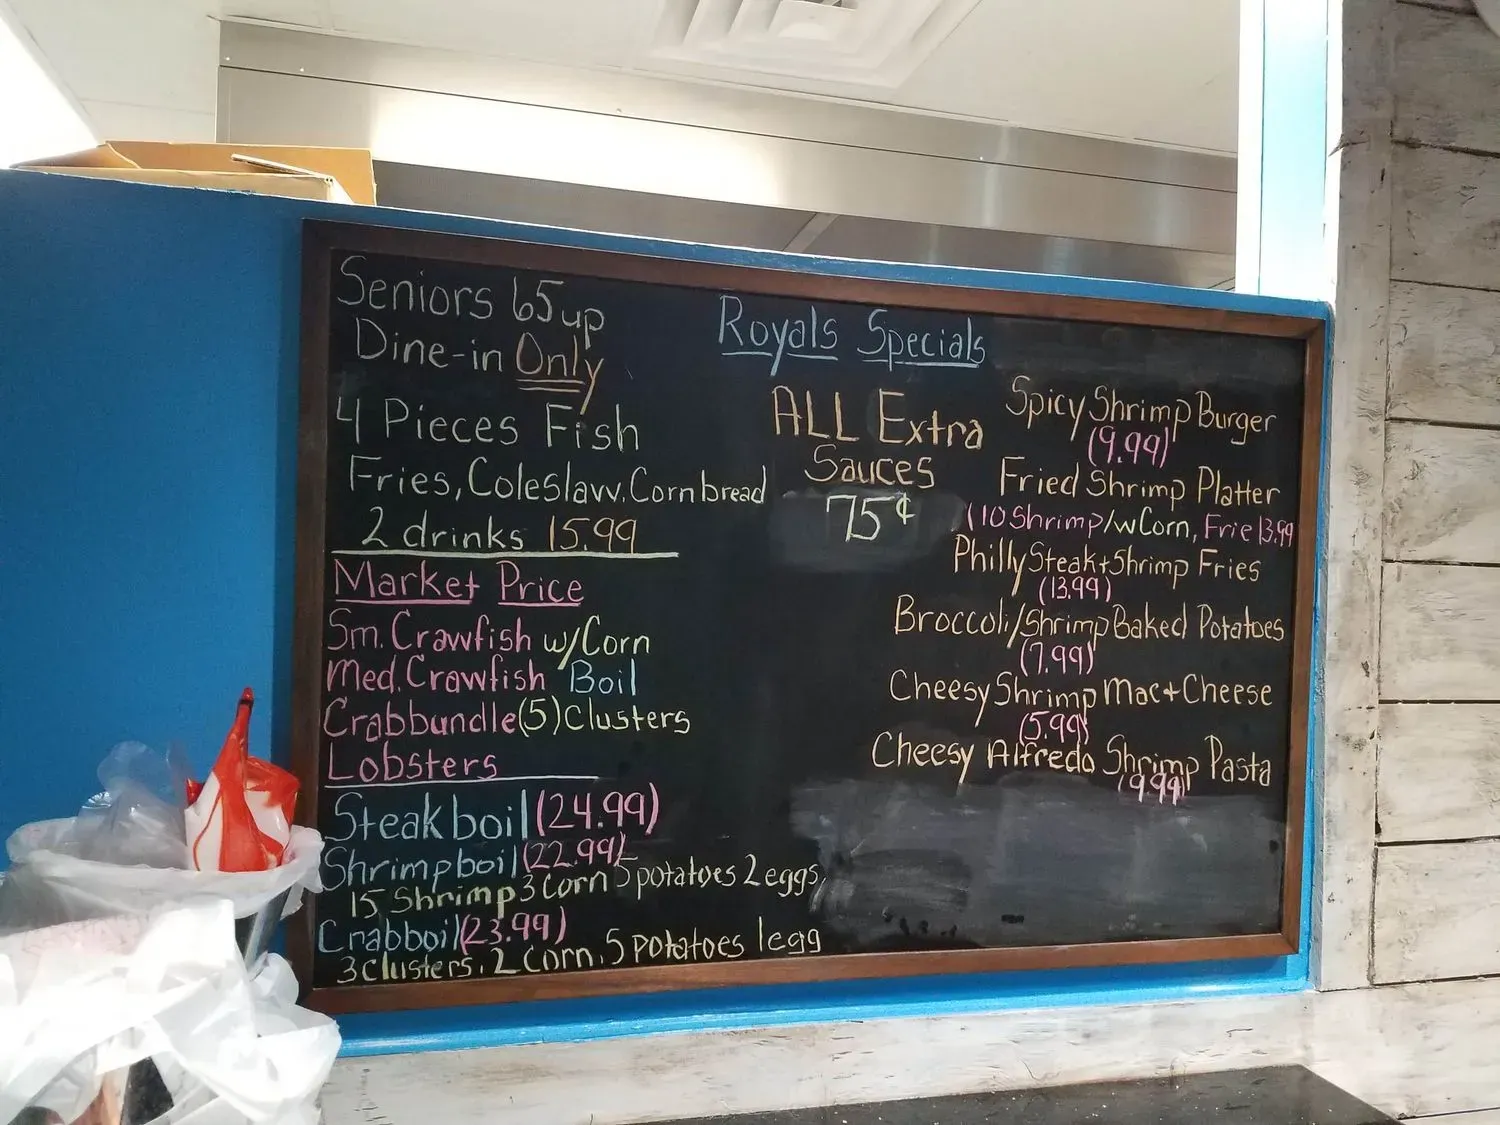 Seniors 65 up
Dine-in Only
4 Pieces Fish
Fries, Coleslaw, Cornbread
2 drinks 15.99
Market Price
Sm. Crawfish w/Corn
Med. Crawfish Boil
Crabbundle (5) Clusters
Lobsters
Steak boil (24.99)
Shrimp boil (22.99)
15 Shrimp 3 corn 5 potatoes 2 eggs,
Crabboil (23.99)
3 clusters, 2 Corn, 5 potatoes 1 egg
Royals Specials
ALL Extra
Sauces
75¢
Spicy Shrimp Burger
(9.99)
Fried Shrimp Platter
(10 Shrimp/w Corn, Frie 13.99
Philly Steak + Shrimp Fries
(13.99)
Broccoli/Shrimp Baked Potatoes
(7.99)
Cheesy Shrimp Mac + Cheese
(5.99)
Cheesy Alfredo Shrimp Pasta
(9.99)